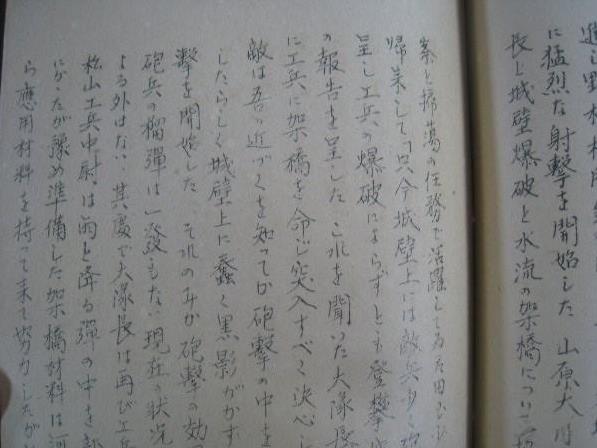 に猛烈な射撃を開始した 山原大
長と城壁爆破と水流の架橋につい
索と掃蕩の任務で活躍して
帰来して「只今城壁上には敵兵少く
呈し工兵の爆破によらずとも登攀
の報告を呈した これを聞いた大隊長
に工兵に架橋を命じ突入すべく決心し
敵は吾の近づくを知ってか砲撃の中を
したらしく城壁上に蠢く黒影がかす
撃を開始した それのみか砲撃の効
砲兵の榴弾は一発もない 現在の状況
よる外はない 其處で大隊長は再び工兵
松山工兵中尉は雨と降る弾の中を部
にかったが豫め準備した架橋材料は河
ら應用材料を持って来て努力したが